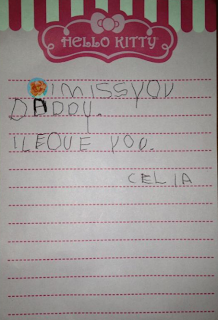 HELLO KITTY
I MISS YOU
DADDY.
I LEOVE YOU.
CELIA